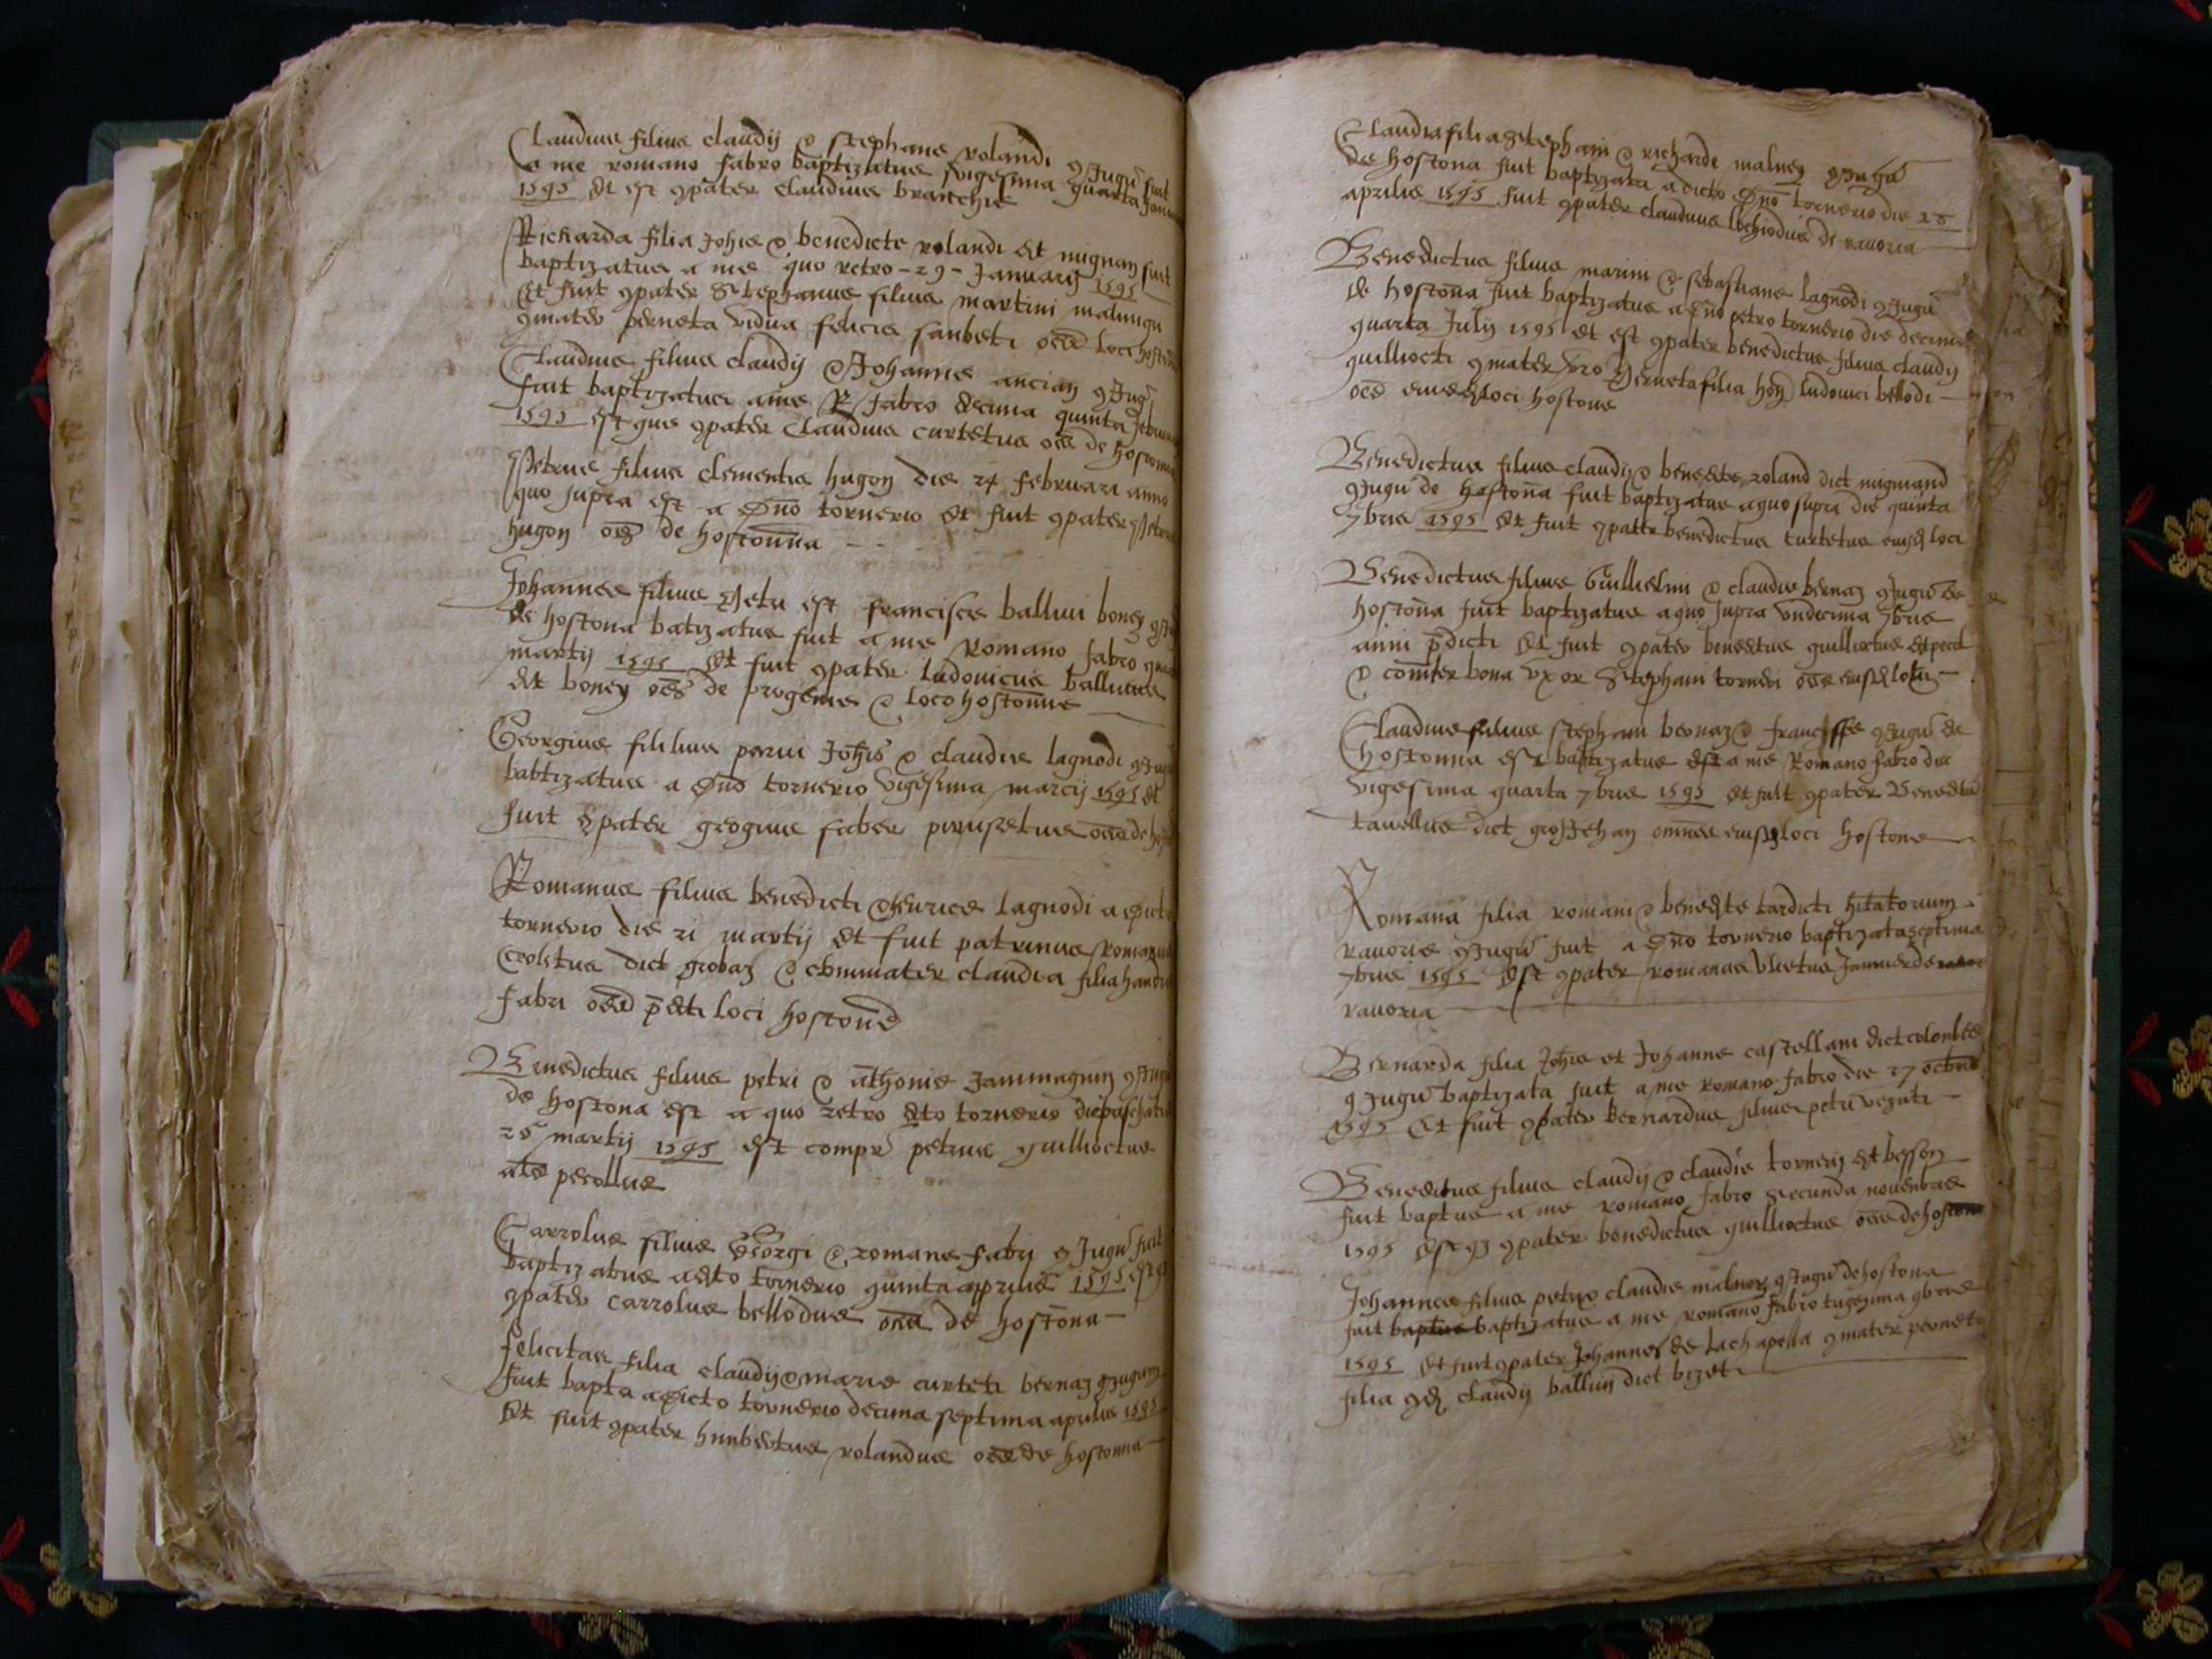 Claudius filius claudij & stephane rolandi 9Jugū fuit
a me romano fabro baptizatus vigesima quarta Janu
1595 et est 9pater claudius branchie
Richarda filia Johis & benedicte rolandi et mignan fuit
baptizatus a me quo retro - 29 - Januarij 1595
et fuit 9pater Stephanus filius martini
9mater perneta vidua felicis sanbeti oēs loci hoston
Claudius filius claudij & Johanne ancian 9Jug
fuit baptizatus a me R fabro decima quinta febru
1595 estque 9pater claudius curtetus oēs de hostonna
Petrus filius clementis hugon die 24 februari anno
quo supra est a Dno tornerio et fuit 9pater Petrus
hugon oēs de hostonna - -
Johannes filius Petri est francisce ballini boney 9Ju
de hostona batizatus fuit a me Romano fabro
martij 1595 et fuit 9pater ludovicus
et boney oēs de progenie & loco hostonne
Georgius fililius parvi Johis & claudie lagnodi 9Jug
babtizatus a Dno tornerio vigesima marcij 1595 et
fuit 9pater geogius faber oēs de
Romanus filius benedicti & henrice lagnodi a dicto
tornerio die 21 martij et fuit patrinus romanus
dict grobaz & commater claudia filia
fabri oēs pdcti loci hostone
Benedictus filius petri & āthonie Jammagnin 9Jugu
de hostona est a quo retro dcto tornerio die paschatis
25 martij 1595 est compr petrus guillioctus
ats perollus
Carrolus filius Georgi & romane fabrj 9Jugū fuit
baptizatus a dcto tornerio quinta aprilis 1595 est
9pater carrolus bellodus oēs de hostōna -
felicitas filia claudij & marie curteti bernaz 9Jugum
fuit bapta a dicto tornerio decima septima aprilis 1595
et fuit 9pater humbertus rolandus oēs de hostonna -
Claudia filia Stephani & richarde malney 9Jugū
de hostona fuit baptizata a dicto Dno tornerio die 28
aprilis 1595 fuit 9pater claudius lochiodus de ravoria
Benedictus filius marini & sebastiane lagnodi 9Jugū
de hostona fuit baptizatus a Dno petro tornerio die decima
quarta Julij 1595 et est 9pater benedictus filius claudij
guilliocti 9mater vro Perneta filia hon ludovici bellodi -
oēs eiusd loci hostone
Benedictus filius claudij & benedcte roland dict mignand
9Jugū de hostona fuit baptizatus a quo supra die quinta
7bris 1595 et fuit 9pater benedictus curtetus eiusd loci
Benedictus filius Guillielmi & claudie bernaz 9Jugū de
hostona fuit baptizatus a quo supra undecima 7bris
anni pdicti et fuit 9pater benedctus guillioctus
& comter bona uxor Stephani torneri oēs eiusd loci -
Claudius filius stephani bernaz & 9Jugū de
hostonna est baptizatus est a me Romano fabro die
vigesima quarta 7bris 1595 et fuit 9pater Benedctus
tavellus dict grosJehan omnes eiusd loci hostone
Romana filia romani & benedcte tardicti hitatorum
ravorie 9Jugū fuit a Dno tornerio baptizata septima
7bris 1595 est 9pater romanus
ravoria
Bernarda filia Johis et Johanne castellani dict colonbet
9Jugū baptizata fuit a me romano fabro die 27 octobris
1595 et fuit 9pater bernardus filius petri vezati -
Benedictus filius claudij & claudie tornerij et besson
fuit baptus a me romano fabro secunda novenbris
1595 estq3 9pater benedictus guillioctus oēs de hostona
Johannes filius petri & claudie malney 9Jugū de hostona
fuit baptus baptizatus a me romano fabro 9bris
1595 et fuit 9pater Johannes de lachapella 9mater perneta
filia 9d claudij ballin dict bizet